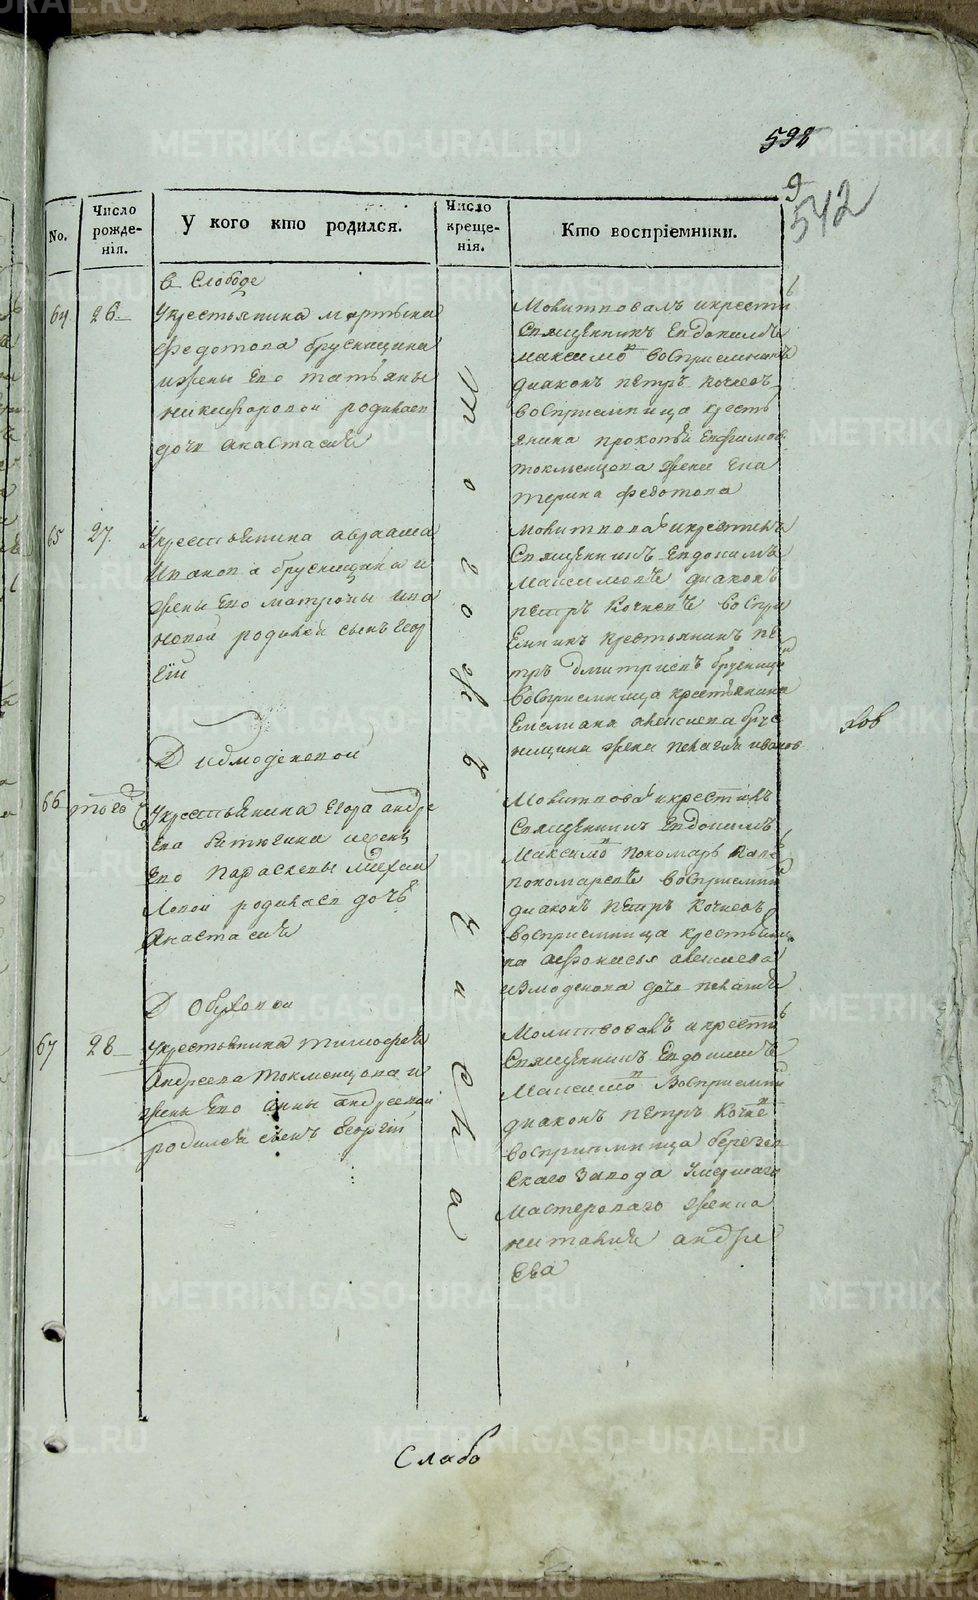 METRIKI.GASO-URAL.RU
598
9
542
No.
Число рожде-нія.
У кого кто родился.
Число креще-нія.
Кто воспріемники.
в Слободе
64
26
Укрестьянина мартына
федотова брусницына
ижены Его татьяны
никифоровой родилась
дочь анастасия
Того ж числа
Молитвовалъ икрестилъ
Священникъ Евдокимъ
Максимовъ Восприемникъ
диаконъ петръ Кочневъ
восприемница кресть
янина прокопья Ефимова
токменцова жена Ека
терина федотова
65
27
Укрестьянина авраама
Иванова брусницына и
жены Его матроны ива
новой родился сынъ Геор
гий
молитвовалъ икрестилъ
Священникъ Евдокимъ
Максимовъ диаконъ
петръ Кочневъ воспри
Емникъ крестьянинъ пе
тръ дмитриевъ брусницы
восприемница крестьянина
Емелиана алексеева брус
ницына жена пелагия иванов
Д измоденовой
66
того ч
Укрестьянина Егора андре
ева Ватюгина ижены
Его параскевы михаи
ловой родилась дочь
Анастасия
Молитвовалъ икрестилъ
Священникъ Евдокимъ
Максимовъ пономарь
пономаревъ восприемни
диаконъ петръ Кочневъ
восприемница крестьяни
на афонасья алексеева
измоденова дочь пелагия
Д Обуховой
67
28
Укрестьянина тимофея
Андреева токменцова и
жены Его анны андреевой
родился сынъ Георгий
Молитвовалъ икрестилъ
Священникъ Евдокимъ
Максимовъ Восприемни
диаконъ петръ Кочне
восприемница
скаго Завода умершаго
мастероваго жена
наталия андре
ева
Слабо